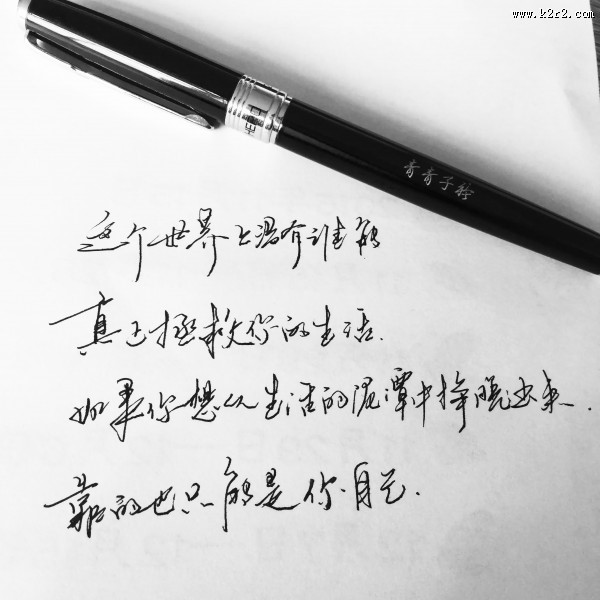 www.k2r2.com
HERO
青青子衿
这个世界上没有谁能
真正拯救你的生活.
如果你想从生活的泥潭中挣脱出来.
靠的也只能是你自己.